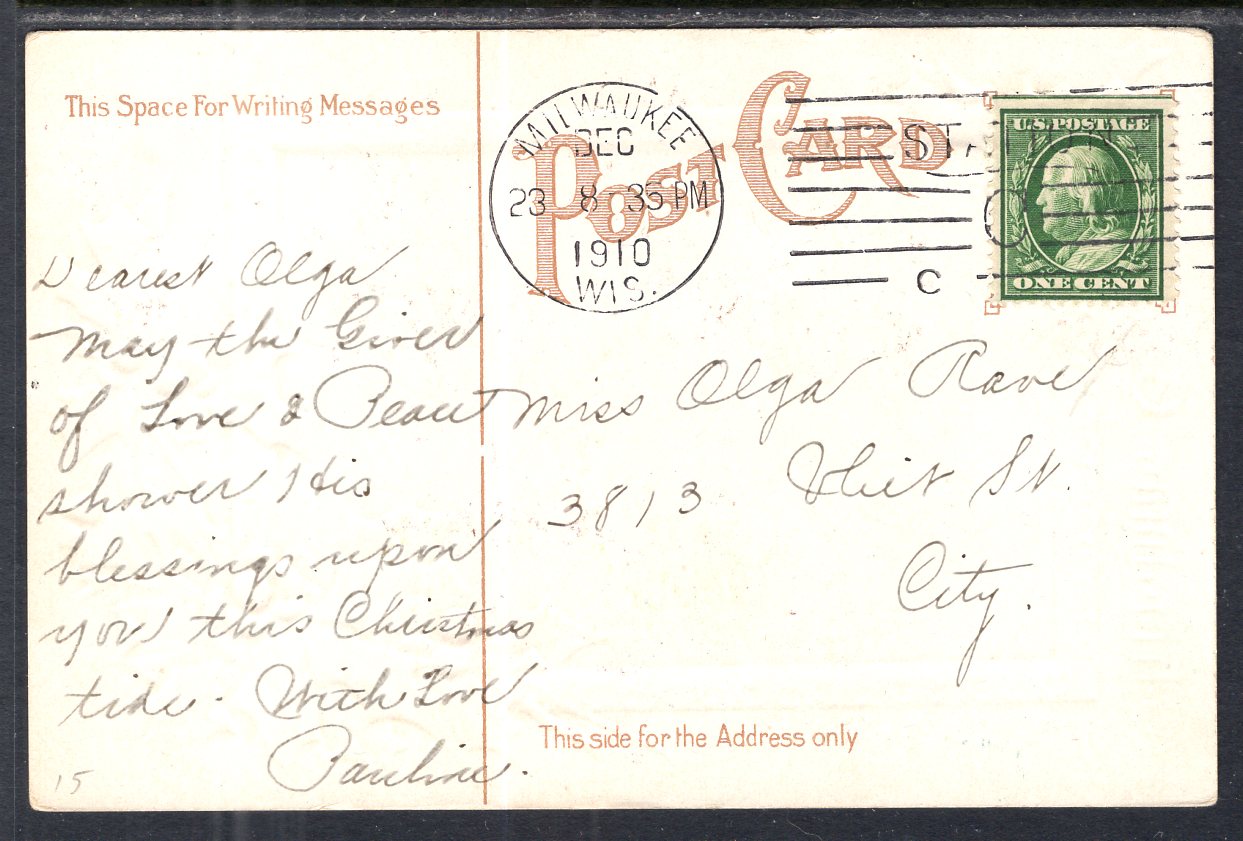 This Space For Writing Messages
POST CARD
MILWAUKEE
DEC
23 8-35 PM
1910
WIS.
C
U.S. POSTAGE
ONE CENT
Dearest Olga
May the Giver
of Love & Peace
shower His
blessings upon
you this Christmas
tide. With Love
Pauline.
15
Miss Olga Rave
3813 Vliet St.
City.
This side for the Address only